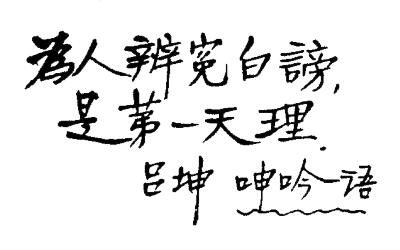 為人辨冤白謗,
是第一天理.
吕坤 呻吟语